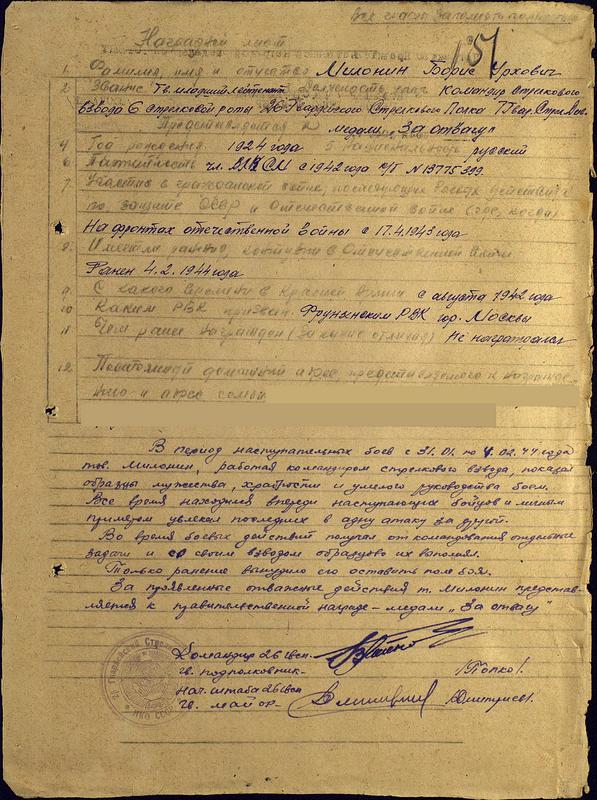 Наградной лист
1. Фамилия, имя и отчество Милонин Борис Юрхович
2. Звание Гв. младший лейтенант Должность, часть Командир стрелкового
взвода 6 стрелковой роты 26 Гвардейского Стрелкового Полка
Представляется к медали "За отвагу"
4 Год рождения 1924 года 5 Национальность русский
6 Партийность чл. ВЛКСМ с 1942 года
7 Участие в гражданской войне, последующих боевых действиях
по защите СССР и отечественной войне (где, когда)
На фронтах отечественной войны с 17.4.1943 года
8. Имеет ли ранения, контузии в Отечественной войне
Ранен 4.2.1944 года
9 С какого времени в Красной Армии с августа 1942 года
10 Каким РВК призван Фрунзенским РВК гор. Москвы
11 Чем ранее награжден (за какие отличия) Не награждался
12. Постоянный домашний адрес представляемого к награжде-
нию и адрес семьи
В период наступательных боев с 31.01. по 4.02.44 года
тов. Милонин, работая командиром стрелкового взвода, показал
образцы мужества, храбрости и умелого руководства боем.
Все время находился впереди наступающих бойцов и личным
примером увлекал последних в одну атаку за другой.
Во время боевых действий получал от командования отдельные
задачи и со своим взводом образцово их выполнял.
Только ранение вынудило его оставить поле боя.
За проявленные отважные действия т. Милонин представ-
ляется к правительственной награде – медали "За отвагу"
Командир 26 гвсп.
гв. подполковник- /Попко/.
нач. штаба 26 гвсп
гв. майор- /Дмитриев/.